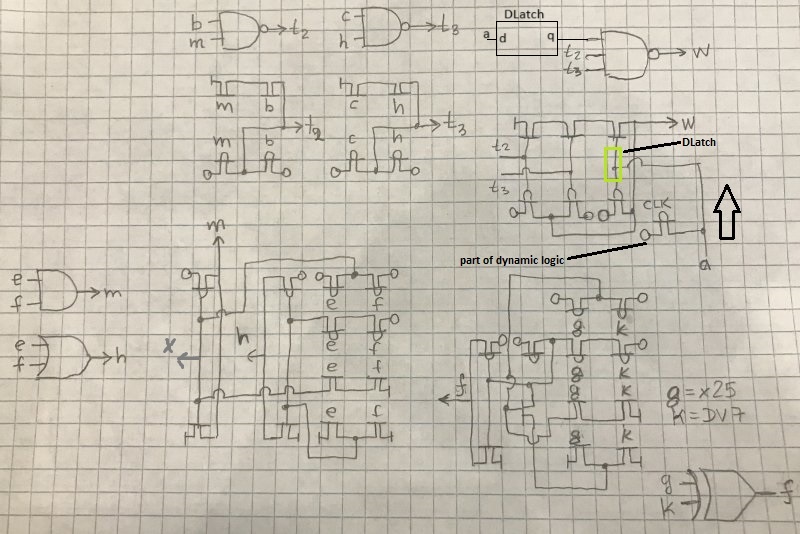 b
m
t2
c
h
t3
DLatch
a d q
t2
t3
W
m b
t2
m b
c h
t3
c h
W
DLatch
t2
t3
CLK
part of dynamic logic
a
m
e
f
m
e f
h
e f
X
e f
e
f
h
e f
g k
g k
f
g k
g = x25
k = DV7
g k
g
k
f